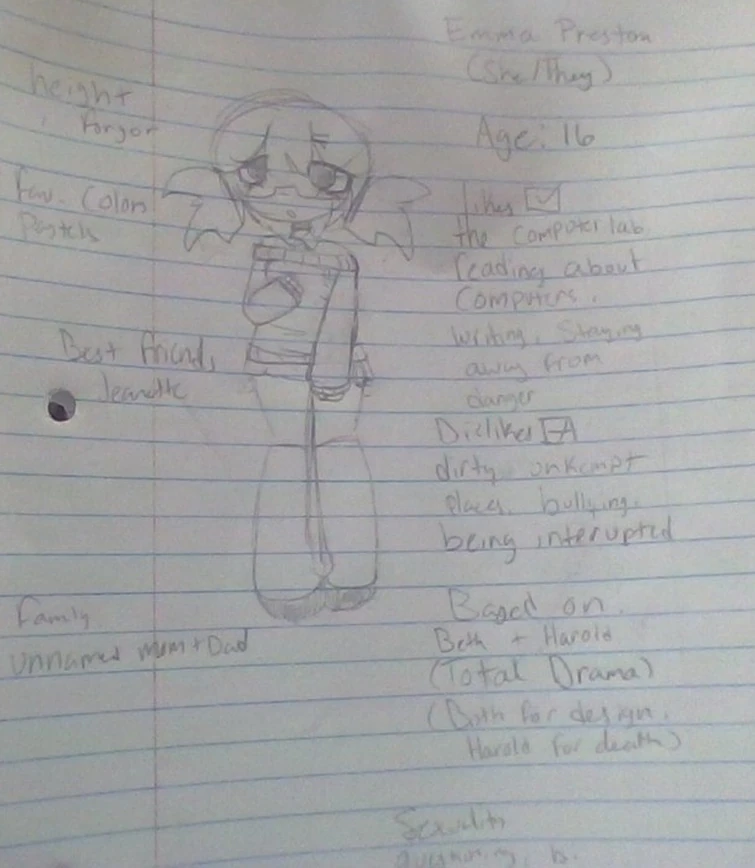 Emma Preston
(She/They)
height
forgor
Age: 16
Fav. Colors
Pastels
likes
the computer lab
reading about
Computers.
writing. Staying
away from
danger
Best friend,
Jeanette
Dislikes
dirty, unkempt
places. bullying.
being interupted
Family
unnamed mom + Dad
Based on.
Beth + Harold
(Total Drama)
(Both for design.
Harold for death)
Sexuality
questioning,